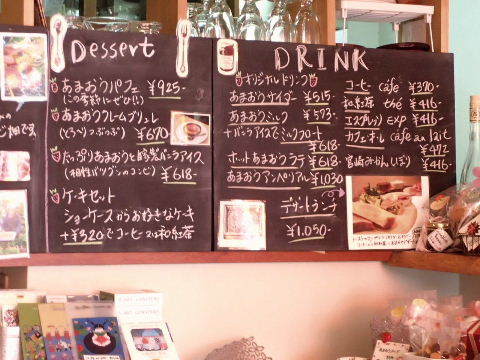 Dessert
あまおうパフェ ¥925-
(この季節にぜひ!!)
あまおうクレームブリュレ
(とろ〜りつぶつぶ) ¥670
たっぷりあまおうと自家製バニラアイス
(相性バツグンのコンビ) ¥618-
ケーキセット
ショーケースからお好きなケーキ
+¥320でコーヒー又は和紅茶
DRINK
オリジナルドリンク
あまおうサイダー ¥515-
あまおうミルク ¥523-
+バニラアイスでミルクフロート
¥618-
ホットあまおうラテ ¥618-
あまおうアンペリアル ¥1,030
デザートランチ
¥1,050-
コーヒー café ¥370-
和紅茶 thé ¥416-
エスプレッソ EXP ¥416-
カフェオレ café au lait
¥472
宮崎みかんしぼり ¥416-